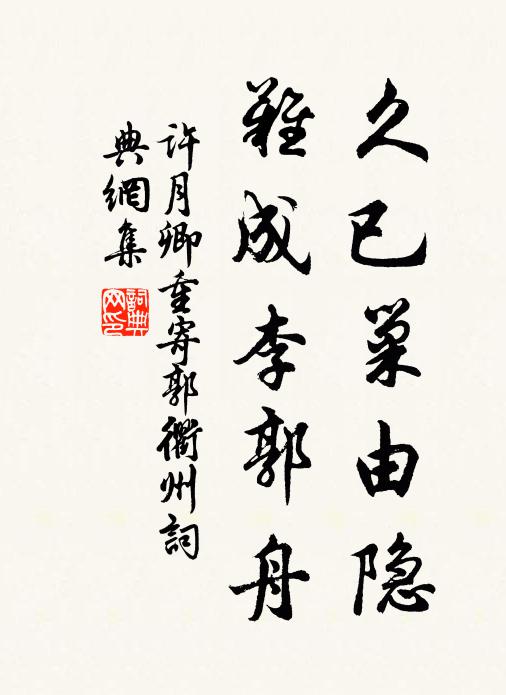 久已巢由隐
难成李郭舟
许月卿重寄郭衢州词
典網集
詞典
网印